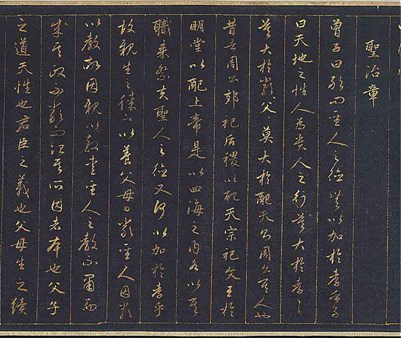 聖治章
曾子曰敢問聖人之德無以加於孝乎子
曰天地之性人為貴人之行莫大於孝
莫大於嚴父莫大於配天則周公其人也
昔者周公郊祀后稷以配天宗祀文王於
明堂以配上帝是以四海之內各以其
職來祭夫聖人之德又何以加於孝乎
故親生之膝下以養父母日嚴聖人因嚴
以教敬因親以教愛聖人之教不肅而
成其政不嚴而治其所因者本也父子
之道天性也君臣之義也父母生之續